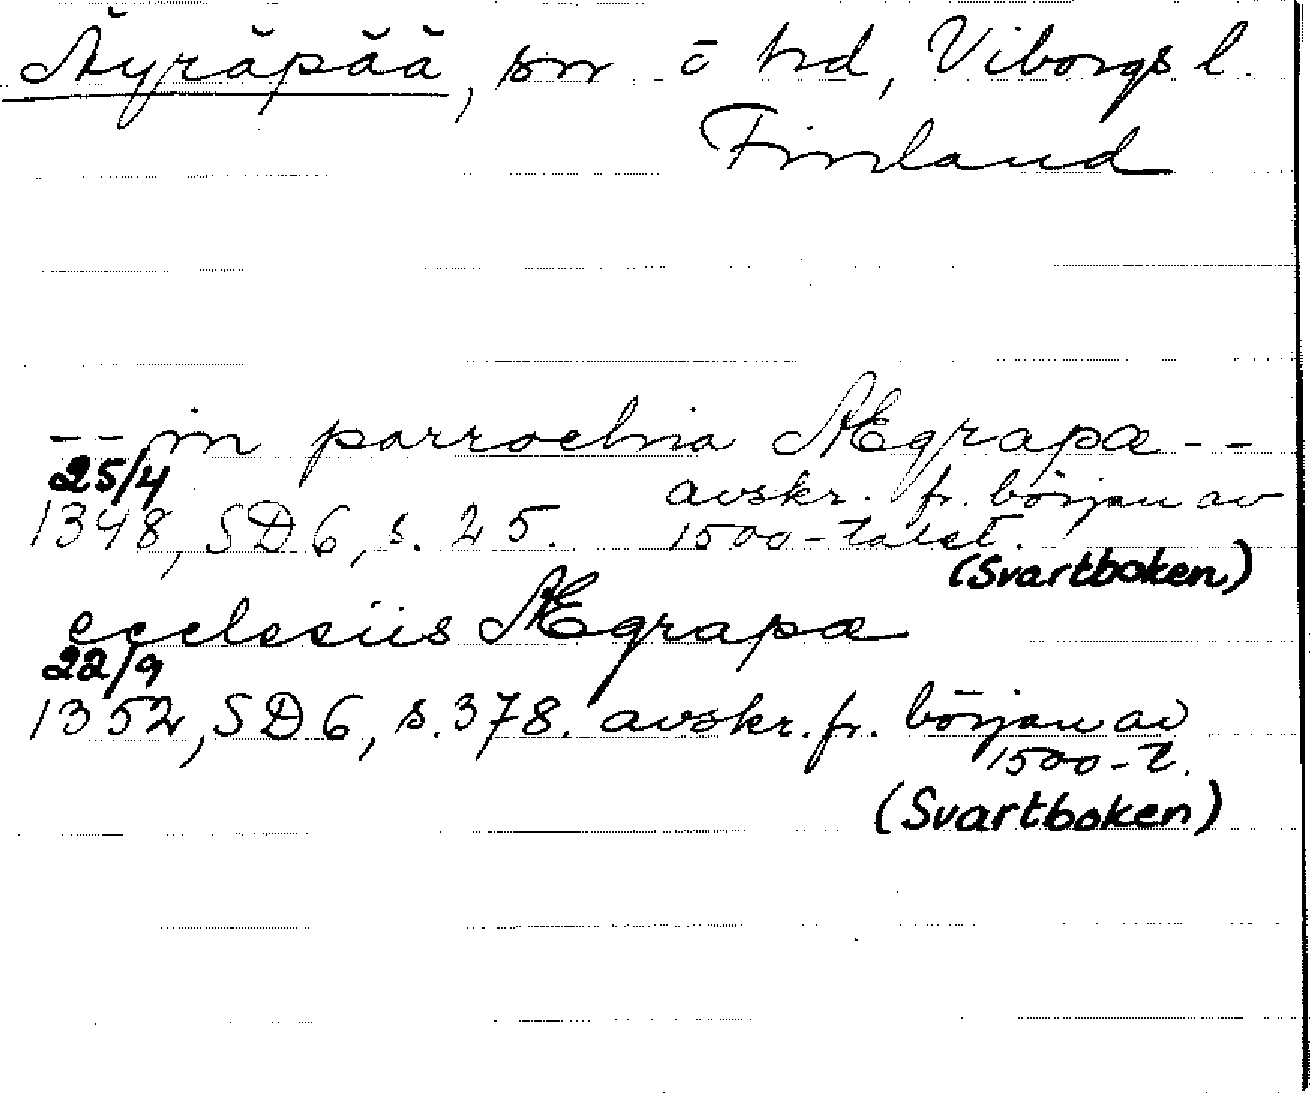 Äyräpää, sn o hd, Viborgs l.
Finland
-- in parrochia Ægrapæ --
25/4
avskr. fr. början av
1348, SD 6, s. 25. 1500-talet.
(Svartboken)
ecclesiis Ægrapæ
22/9
1352, SD 6, s. 378. avskr. fr. början av
1500-t.
(Svartboken)